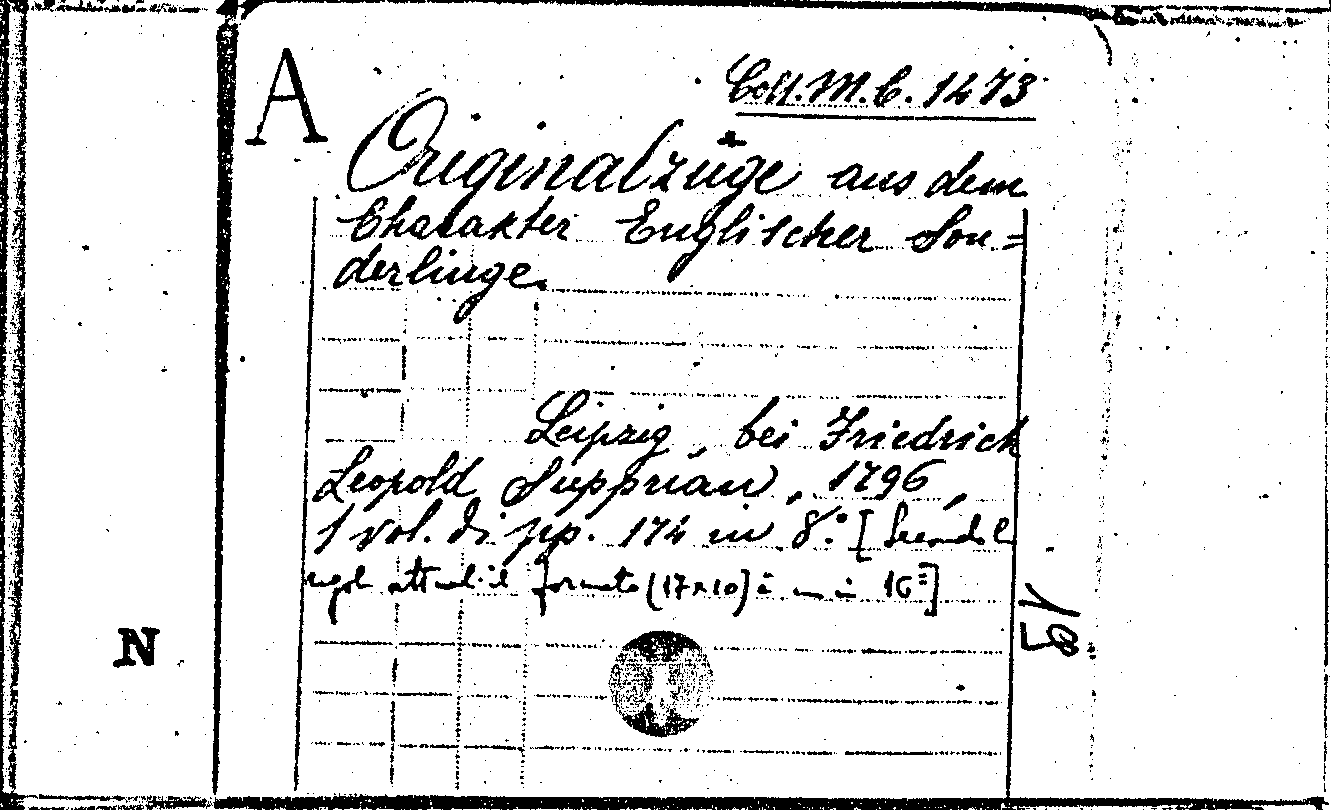 A
Coll. M. C. 1473
Originalzüge aus dem
Charakter Englischer Son=
derlinge.
Leipzig, bei Friedrich
Leopold Supprian, 1796,
1 vol. di pp. 174 in 8.° [Secondo le
regole attuali il formato (17x10) è un in 16°]
N